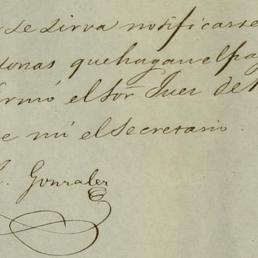 se sirva notificarse
que hagan el pa
el Sor Juez de
mí el Secretario.
Gonzalez